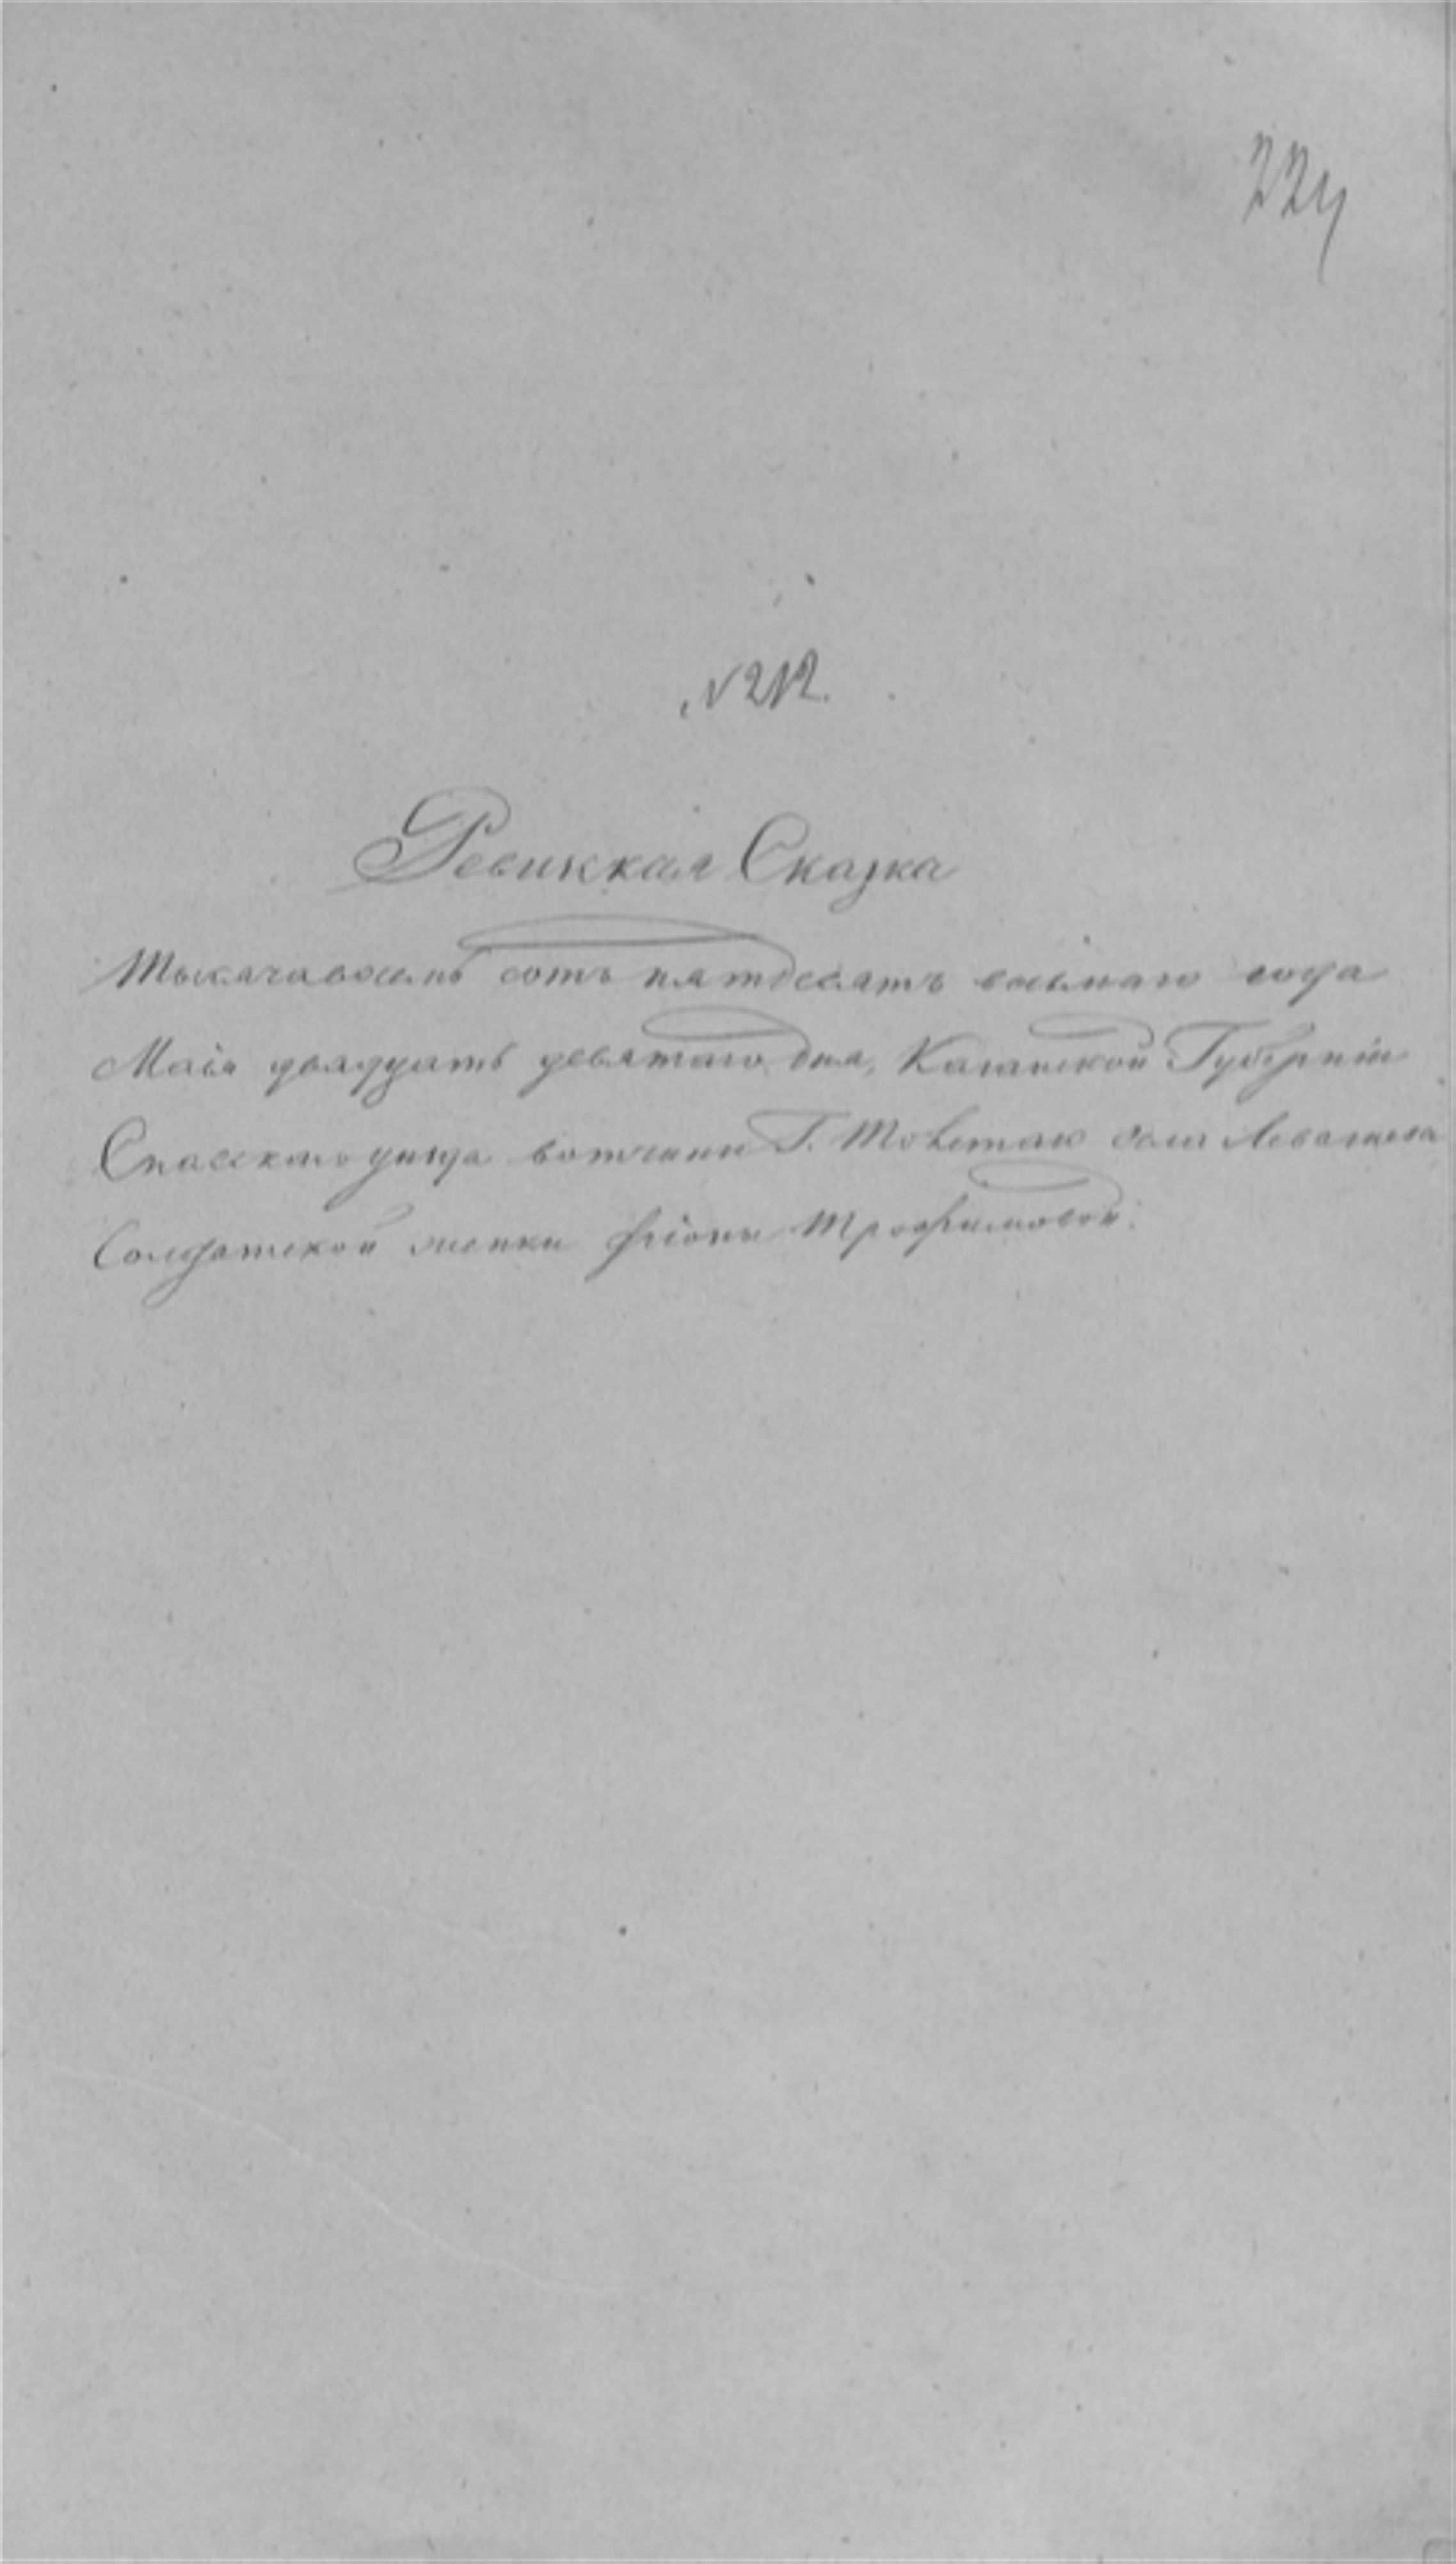 224
№ 212.
Ревижкая Сказка
Тысяча восемь сотъ пятдесятъ восьмаго года
Маія двадцать девятаго дня, Казанской Губерніи
Спасскаго уезда вотчины Г. села Левашева
Солдатской женки Трофимовой.